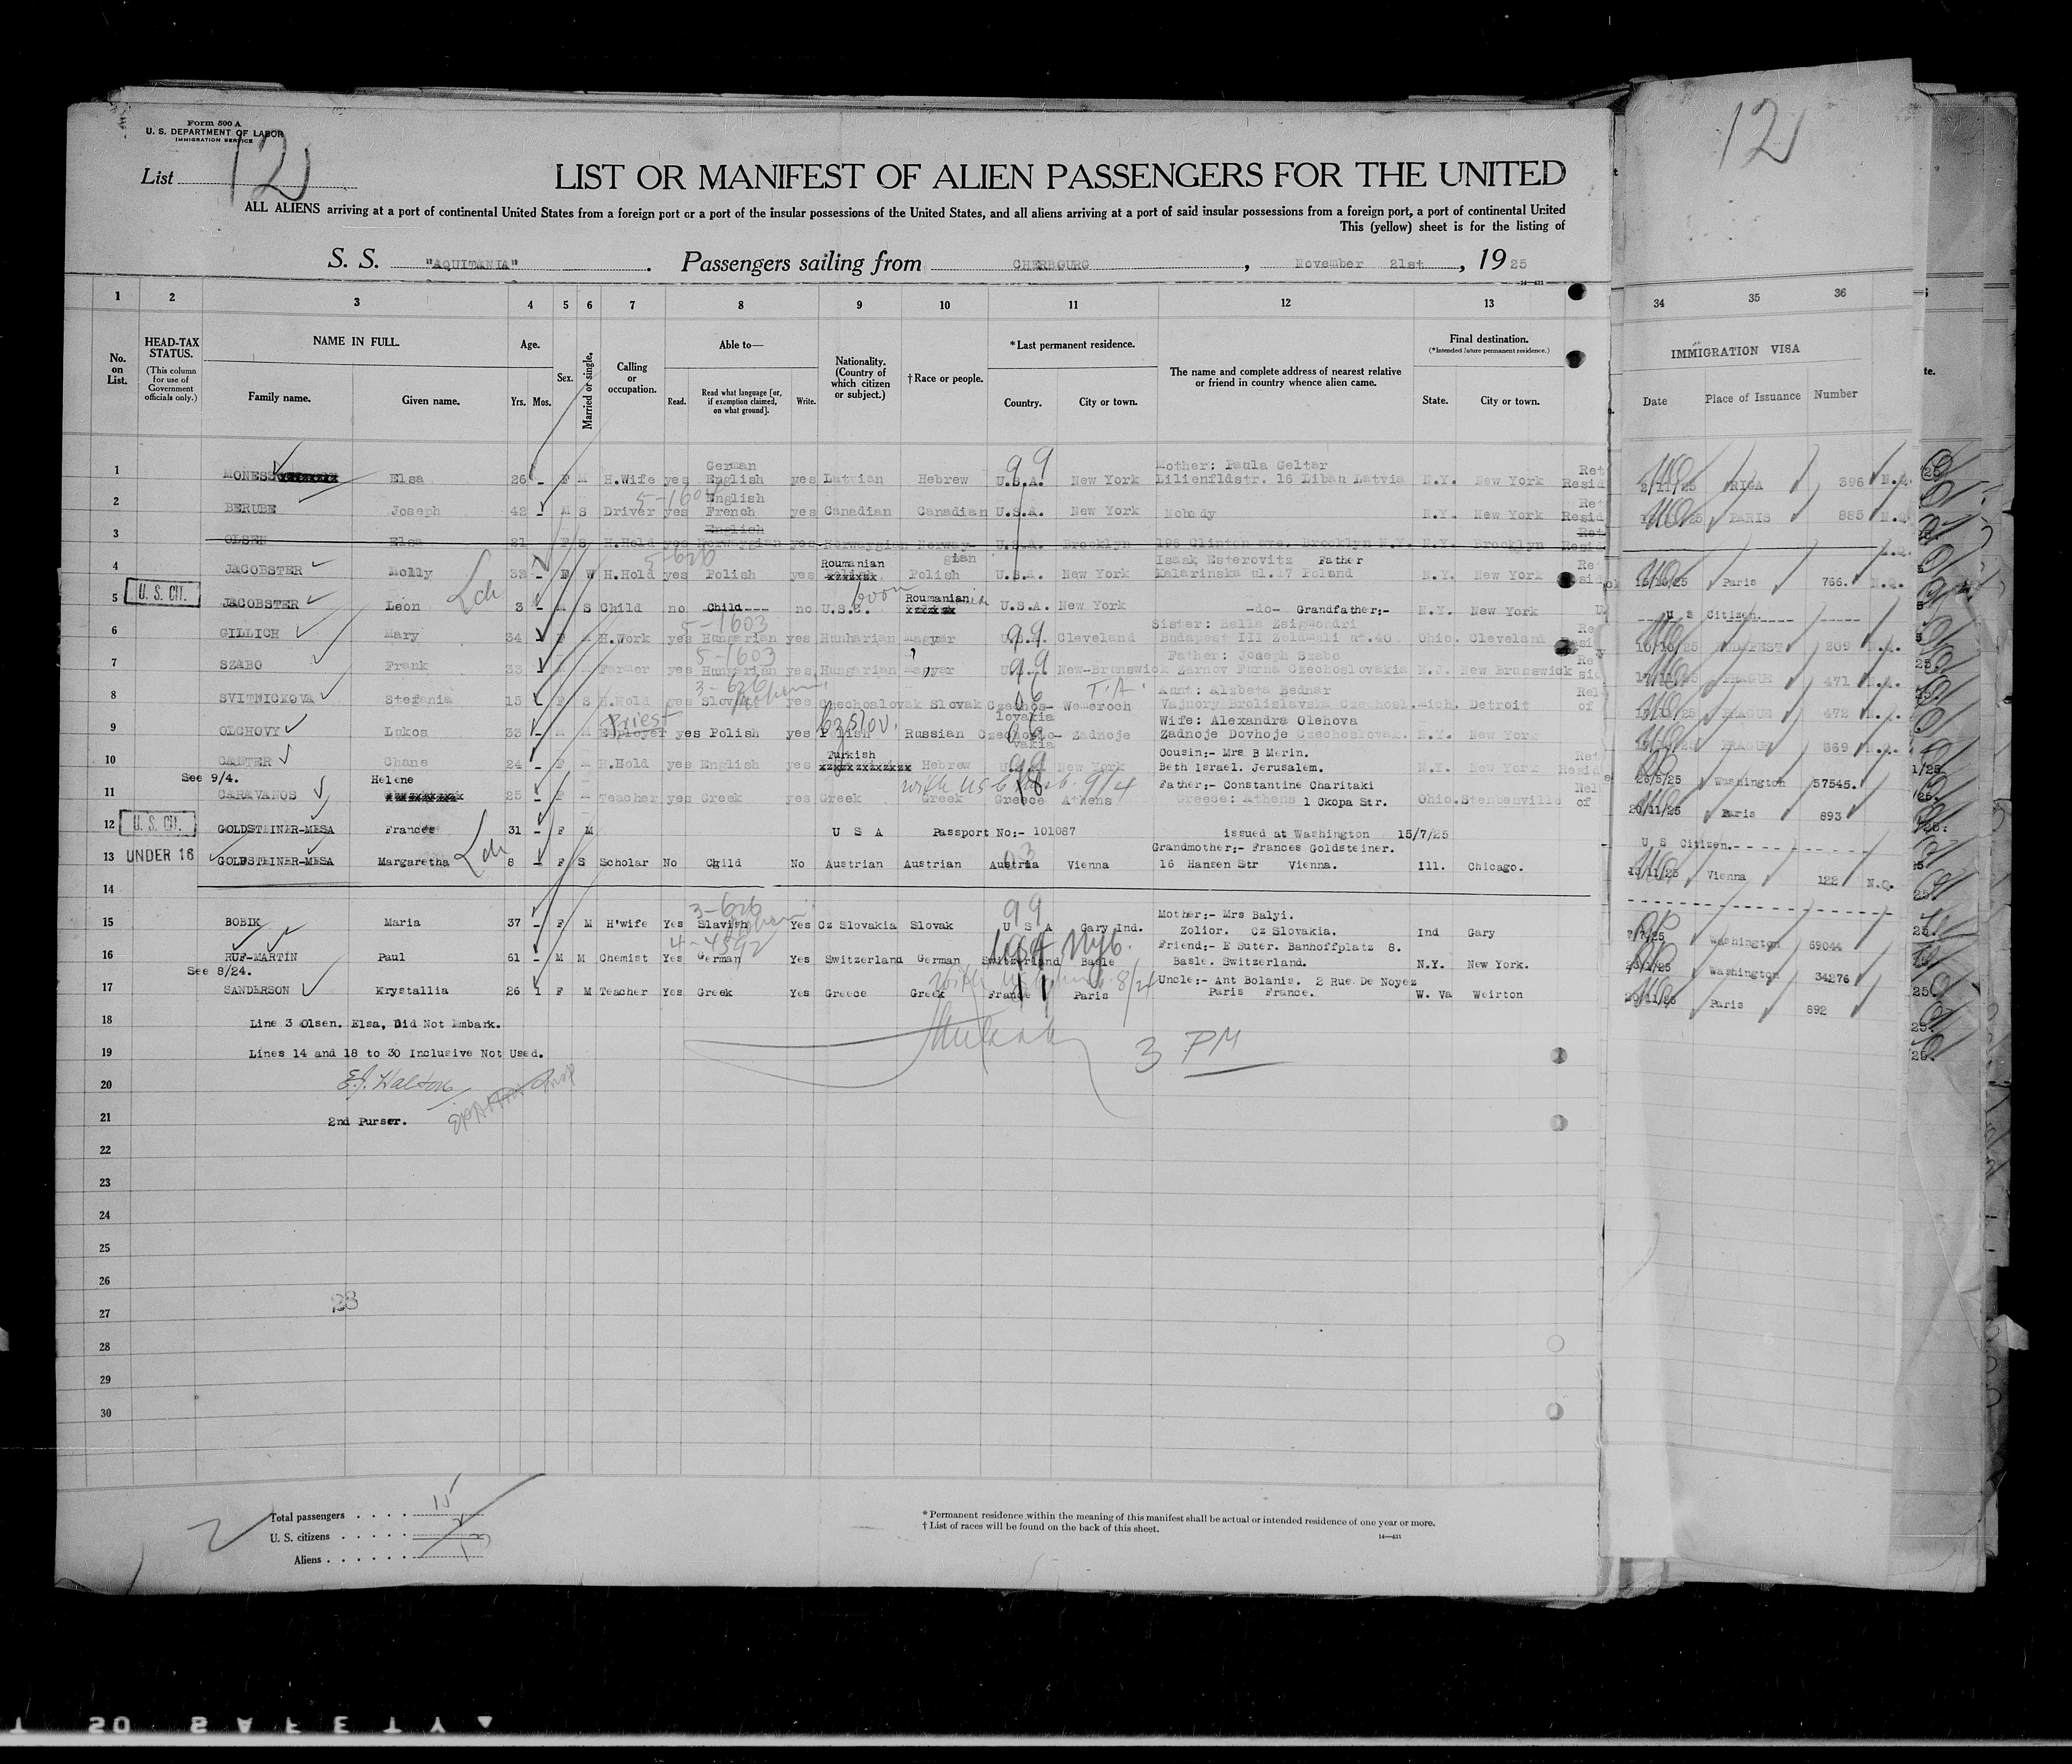 Form 500 A
U. S. DEPARTMENT OF LABOR
IMMIGRATION SERVICE
List 12
12
LIST OR MANIFEST OF ALIEN PASSENGERS FOR THE UNITED
ALL ALIENS arriving at a port of continental United States from a foreign port or a port of the insular possessions of the United States, and all aliens arriving at a port of said insular possessions from a foreign port, a port of continental United
This (yellow) sheet is for the listing of
S. S. "AQUITANIA". Passengers sailing from CHERBOURG, November 21st, 1925
14—431
1 2 3 4 5 6 7 8 9 10 11 12 13 34 35 36
No. on List.
HEAD-TAX STATUS.
(This column for use of Government officials only.)
NAME IN FULL.
Family name. Given name.
Age.
Yrs. Mos.
Sex.
Married or single.
Calling or occupation.
Able to—
Read. Read what language [or, if exemption claimed, on what ground]. Write.
Nationality. (Country of which citizen or subject.)
†Race or people.
*Last permanent residence.
Country. City or town.
The name and complete address of nearest relative or friend in country whence alien came.
Final destination.
(*Intended future permanent residence.)
State. City or town.
IMMIGRATION VISA
Date Place of Issuance Number
German Mother: Paula Geltar Ret
1 MONESS Elsa 26 - F M H.Wife yes English yes Latvian Hebrew U.S.A. New York Lilienfldstr. 16 Liban Latvia N.Y. New York Resid 2/11/25 RIGA 396 N.Q.
99
5-1604 English Ret
2 BERUBE Joseph 42 - M S Driver yes French yes Canadian Canadian U.S.A. New York Nobody N.Y. New York Resid PARIS 885 N.Q.
English Ret
3 OLSEN Elsa 21 F S H.Hold yes Norwaygian yes Norwaygian Norway-gian U.S.A. Brooklyn 196 Clinton ave. Brooklyn N.Y. N.Y. Brooklyn Resid
5-620 Roumanian Isaak Esterovitz Father Ret
4 JACOBSTER Molly 32 - F W H.Hold yes Polish yes Polish U.S.A. New York Kalarinska ul.17 Poland N.Y. New York 15/10/25 Paris 766. N.Q.
U. S. CIT. Roumanian
5 JACOBSTER Leon 3 - M S Child no Child--- no U.S.A. U.S.A. New York -do- Grandfather;- N.Y. New York U S Citizen.
5-1603 Sister: Balla Zsigmondri
6 GILLICH Mary 34 - F M H.Work yes Hungarian yes Hunharian Magyar U.S.A. Cleveland Budapest III Zoldmali ut.40 Ohio. Cleveland 10/10/25 BUDAPEST 269 N.Q.
99
5-1603 Father: Joseph Szabo
7 SZABO Frank 33 - M M Farmer yes Hungarian yes Hungarian Magyar New-Brunswick Zarnov Furna Czechoslovakia N.J. New Brunswick PRAGUE 471 N.Q.
99
3-626 T.A. Aunt: Alzbeta Bednar Rel
8 SVITNICKOVA Stefania 15 F S H.Hold yes Slovak yes Czechoslovak Slovak Czechos-lovakia Wemeroch Vajnory Brolislavska Czechosl. Mich. Detroit of PRAGUE 472
Priest Wife: Alexandra Olehova
9 OLCHOVY Lukos 33 - M M Employer yes Polish yes Polish Russian Czechoslo-vakia Zadnoje Zadnoje Dovhoje Czechoslovak. N.Y. New York PRAGUE 369
Turkish Cousin;- Mrs B Merin. Ret
10 CANTER Chane 24 - F M H.Hold yes English yes Hebrew U.S.A. New York Beth Israel. Jerusalem. N.Y. New York Resid 23/5/25 Washington 57545.
See 9/4. Helene Father;- Constantine Charitaki Rel
11 CARAVANOS 25 - F M Teacher yes Greek yes Greek Greek Greece Athens Greece: Athens 1 Ckopa Str. Ohio. Stenbenville of 20/11/25 Paris 893
9/4
12 U. S. CIT. GOLDSTEINER-MESA Frances 31 - F M U S A Passport No:- 101087 issued at Washington 15/7/25 U S Citizen.
Grandmother;- Frances Goldsteiner.
13 UNDER 16 GOLDSTEINER-MESA Margaretha 8 - F S Scholar No Child No Austrian Austrian Austria Vienna 16 Hansen Str Vienna. Ill. Chicago. 13/11/25 Vienna 122 N.Q.
14
3-626 99 Mother;- Mrs Balyi.
15 BOBIK Maria 37 - F M H'wife Yes Slavish Yes Cz Slovakia Slovak U S A Gary Ind. Zolior. Cz Slovakia. Ind Gary 7/7/25 Washington 69044
4-4592 Friend;- E Suter. Banhoffplatz 8.
16 RUF-MARTIN Paul 61 - M M Chemist Yes German Yes Switzerland German Switzerland Basle Basle. Switzerland. N.Y. New York. Washington 34276
See 8/24. Uncle;- Ant Bolanis. 2 Rue De Noyez
17 SANDERSON Krystallia 26 1 F M Teacher Yes Greek Yes Greece Greek France Paris Paris France. W. Va Weirton 20/11/25 Paris 892
18 Line 3 Olsen. Elsa, Did Not Embark.
19 Lines 14 and 18 to 30 Inclusive Not Used.
3 PM
20 E.J. Walton
21 2nd Purser.
22
23
24
25
26
27
28
29
30
Total passengers . . . . 15
U. S. citizens . . . . . 2
Aliens . . . . . . 13
* Permanent residence within the meaning of this manifest shall be actual or intended residence of one year or more.
† List of races will be found on the back of this sheet.
14—431
SAFETY